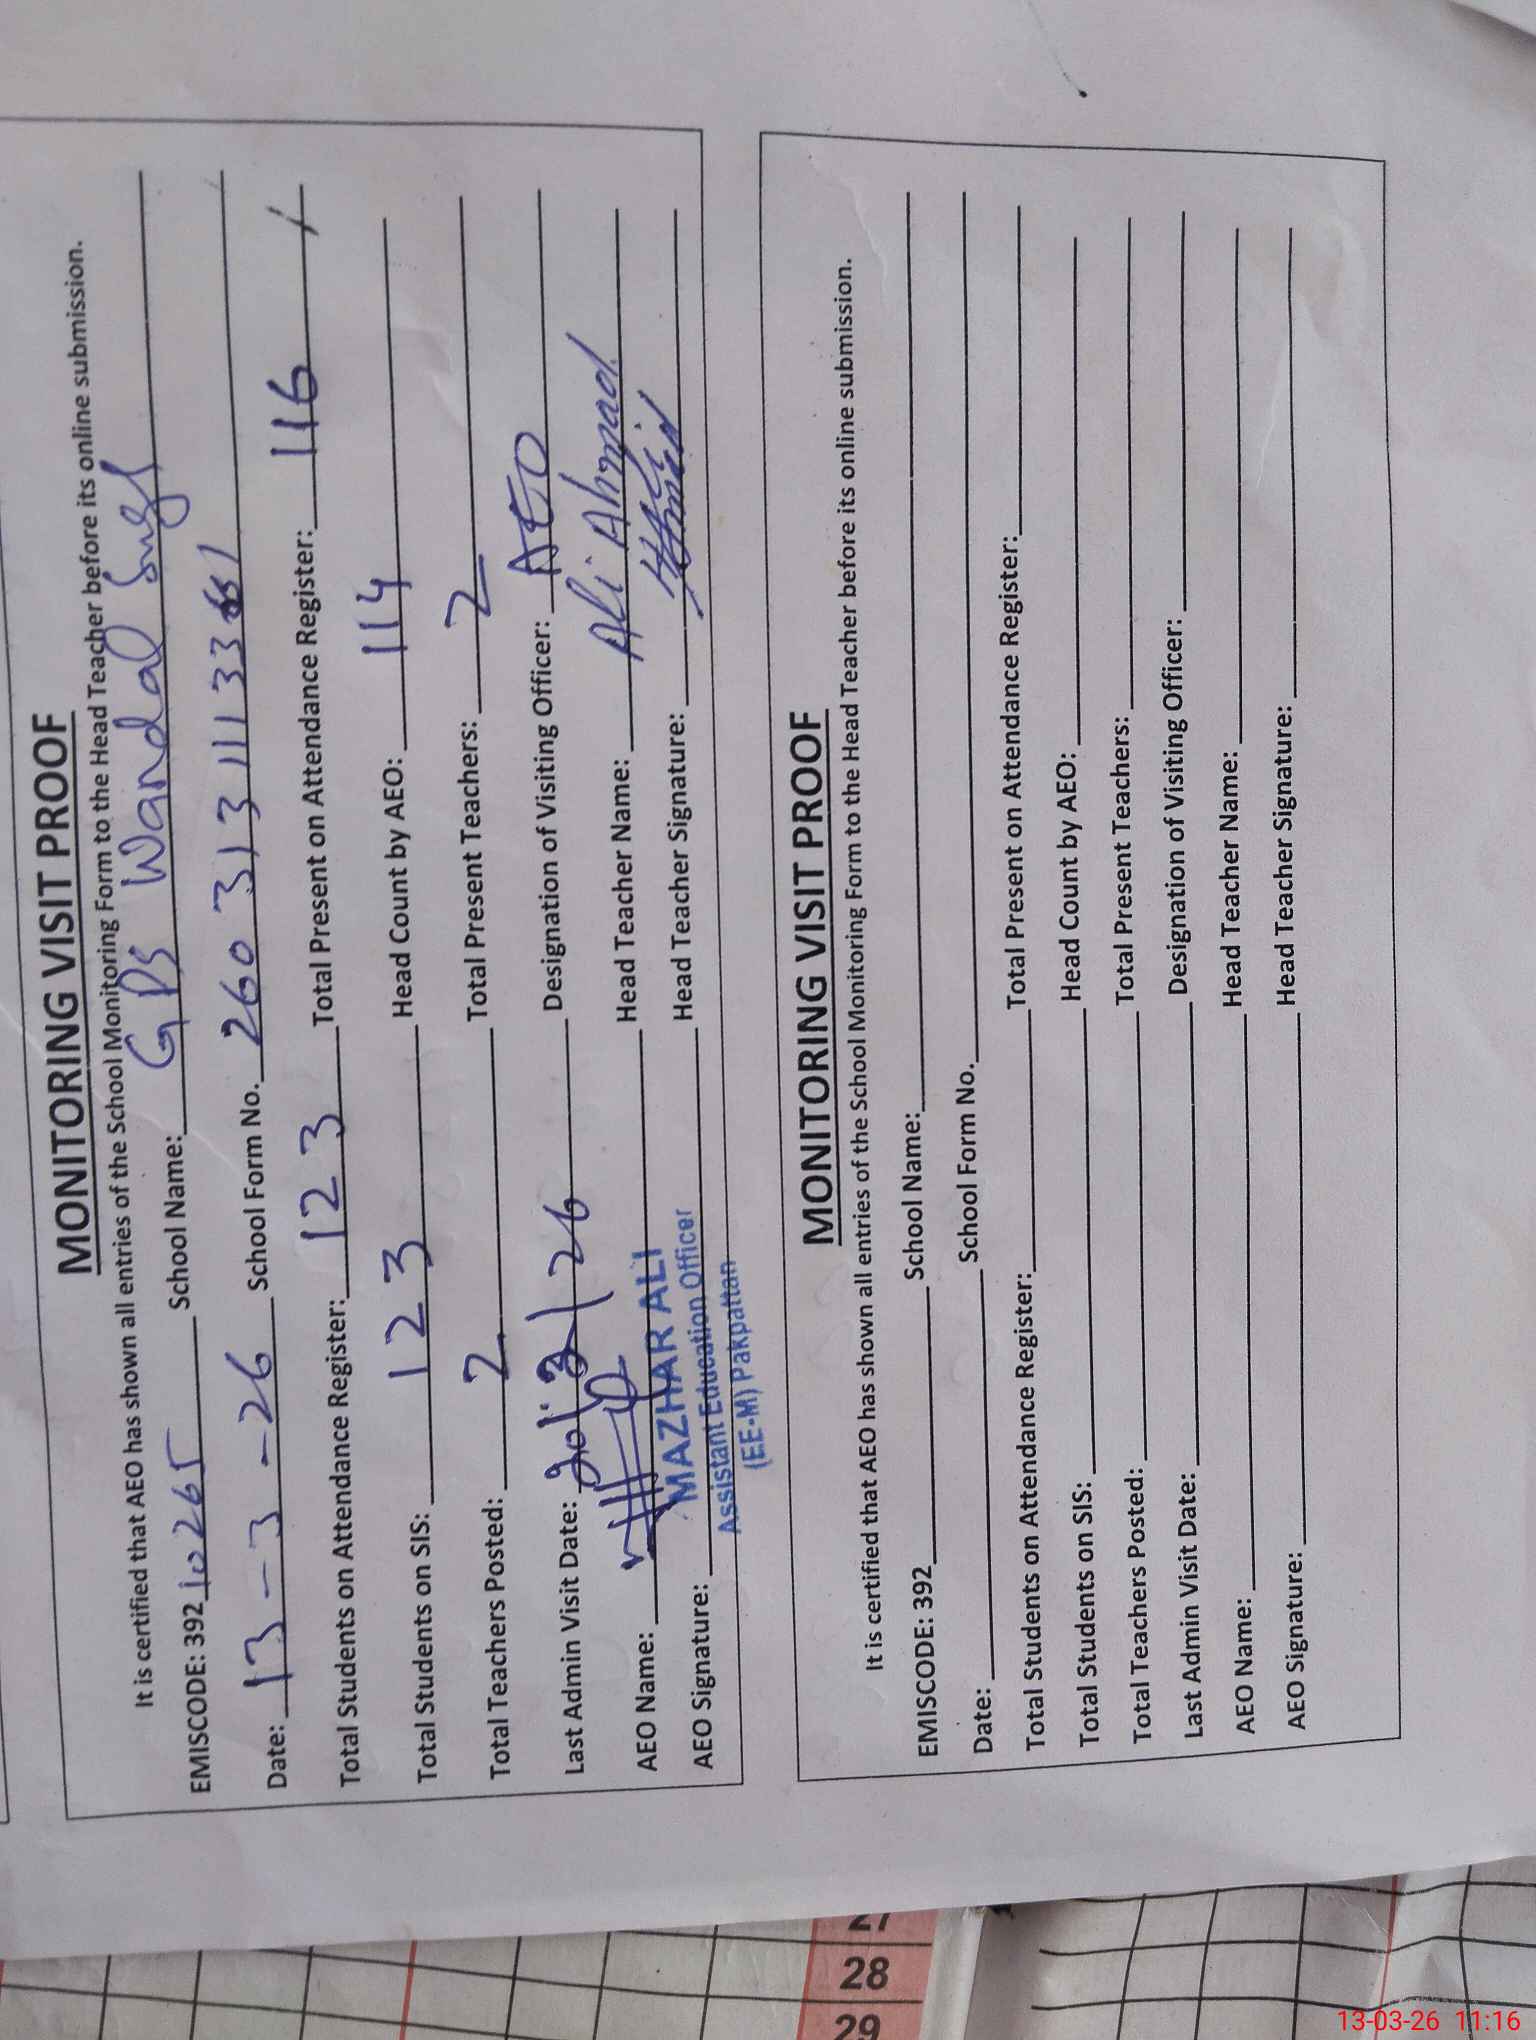 MONITORING VISIT PROOF
It is certified that AEO has shown all entries of the School Monitoring Form to the Head Teacher before its online submission.
EMISCODE: 39210265 School Name: GPS Wandal Singh
Date: 13-3-26 School Form No. 26031311133
Total Students on Attendance Register: 123 Total Present on Attendance Register: 116
Total Students on SIS: 123 Head Count by AEO: 114
Total Teachers Posted: 2 Total Present Teachers: 2
Last Admin Visit Date: 20/2/26 Designation of Visiting Officer: AEO
AEO Name: Head Teacher Name: Ali Ahmad
AEO Signature: Head Teacher Signature:
MAZHAR ALI
Assistant Education Officer
(EE-M) Pakpattan
MONITORING VISIT PROOF
It is certified that AEO has shown all entries of the School Monitoring Form to the Head Teacher before its online submission.
EMISCODE: 392 School Name:
Date: School Form No.
Total Students on Attendance Register: Total Present on Attendance Register:
Total Students on SIS: Head Count by AEO:
Total Teachers Posted: Total Present Teachers:
Last Admin Visit Date: Designation of Visiting Officer:
AEO Name: Head Teacher Name:
AEO Signature: Head Teacher Signature:
27
28
29
13-03-26 11:16